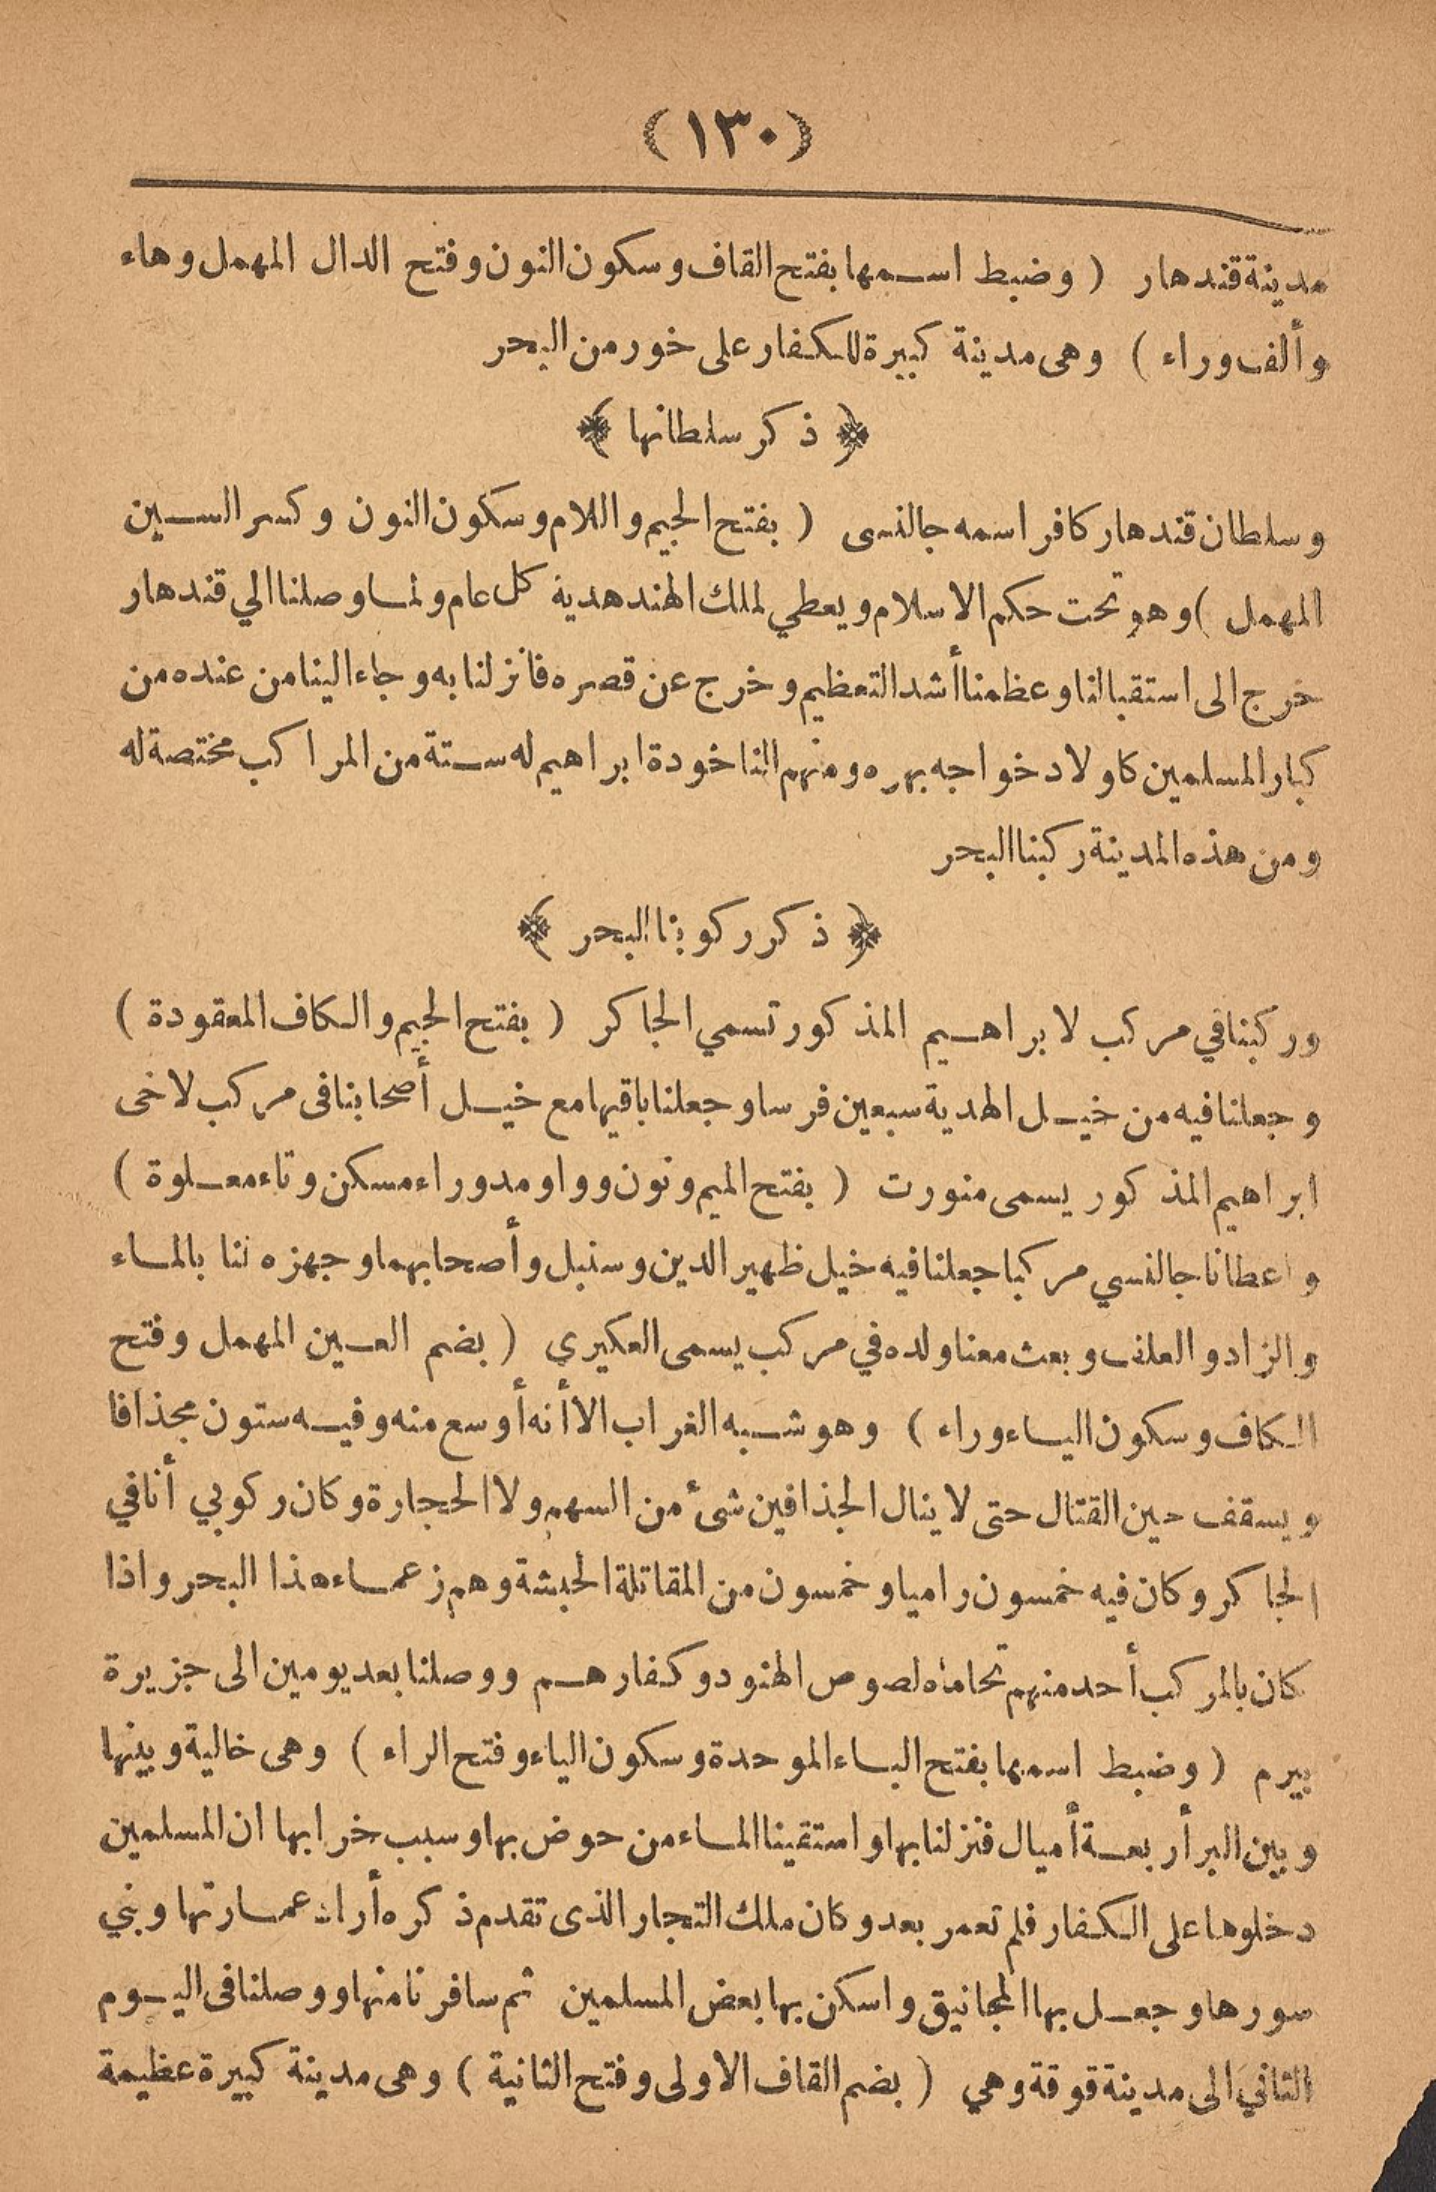 (١٣٠)
مدينة قندهار ( وضبط اسمها بفتح القاف وسكون النون وفتح الدال المهمل وهاء
وألف وراء ) وهى مدينة كبيرة للكفار على خور من البحر
﴿ ذكر سلطانها ﴾
وسلطان قندهار كافر اسمه جالنسى ( بفتح الجيم واللام وسكون النون وكسر السين
المهمل ) وهو تحت حكم الاسلام ويعطي لملك الهند هدية كل عام ولما وصلنا الي قندهار
خرج الى استقبالنا وعظمنا أشد التعظيم وخرج عن قصره فانزلنا به وجاء الينا من عنده من
كبار المسلمين كاولاد خواجه بهره ومنهم الناخودة ابراهيم له ستة من المراكب مختصة له
ومن هذه المدينة ركبنا البحر
﴿ ذكر ركوبنا البحر ﴾
وركبنا في مركب لابراهيم المذكور تسمي الجاكر ( بفتح الجيم والكاف المعقودة )
وجعلنا فيه من خيل الهدية سبعين فرسا وجعلنا باقيها مع خيل أصحابنا فى مركب لاخى
ابراهيم المذكور يسمى منورت ( بفتح الميم ونون وواو مد وراء مسكن وتاء معلوة )
واعطانا جالنسي مركبا جعلنا فيه خيل ظهير الدين وسنبل وأصحابهما وجهزه لنا بالماء
والزاد والعلف وبعث معنا ولده في مركب يسمى العكيري ( بضم العين المهمل وفتح
الكاف وسكون الياء وراء ) وهو شبه الغراب الا أنه أوسع منه وفيه ستون مجذافا
ويسقف حين القتال حتى لا ينال الجذافين شئ من السهم ولا الحجارة وكان ركوبي أنا في
الجاكر وكان فيه خمسون راميا وخمسون من المقاتلة الحبشة وهم زعماء هذا البحر واذا
كان بالمركب أحد منهم تحاماه لصوص الهنود وكفارهم ووصلنا بعد يومين الى جزيرة
بيرم ( وضبط اسمها بفتح الباء الموحدة وسكون الياء وفتح الراء ) وهى خالية وبينها
وبين البر أربعة أميال فنزلنا بها واستقينا الماء من حوض بها وسبب خرابها ان المسلمين
دخلوها على الكفار فلم تعمر بعد وكان ملك التجار الذى تقدم ذكره أراد عمارتها وبني
سورها وجعل بها المجانيق واسكن بها بعض المسلمين ثم سافرنا منها ووصلنا فى اليوم
الثاني الى مدينة قوقة وهي ( بضم القاف الاولى وفتح الثانية ) وهى مدينة كبيرة عظيمة